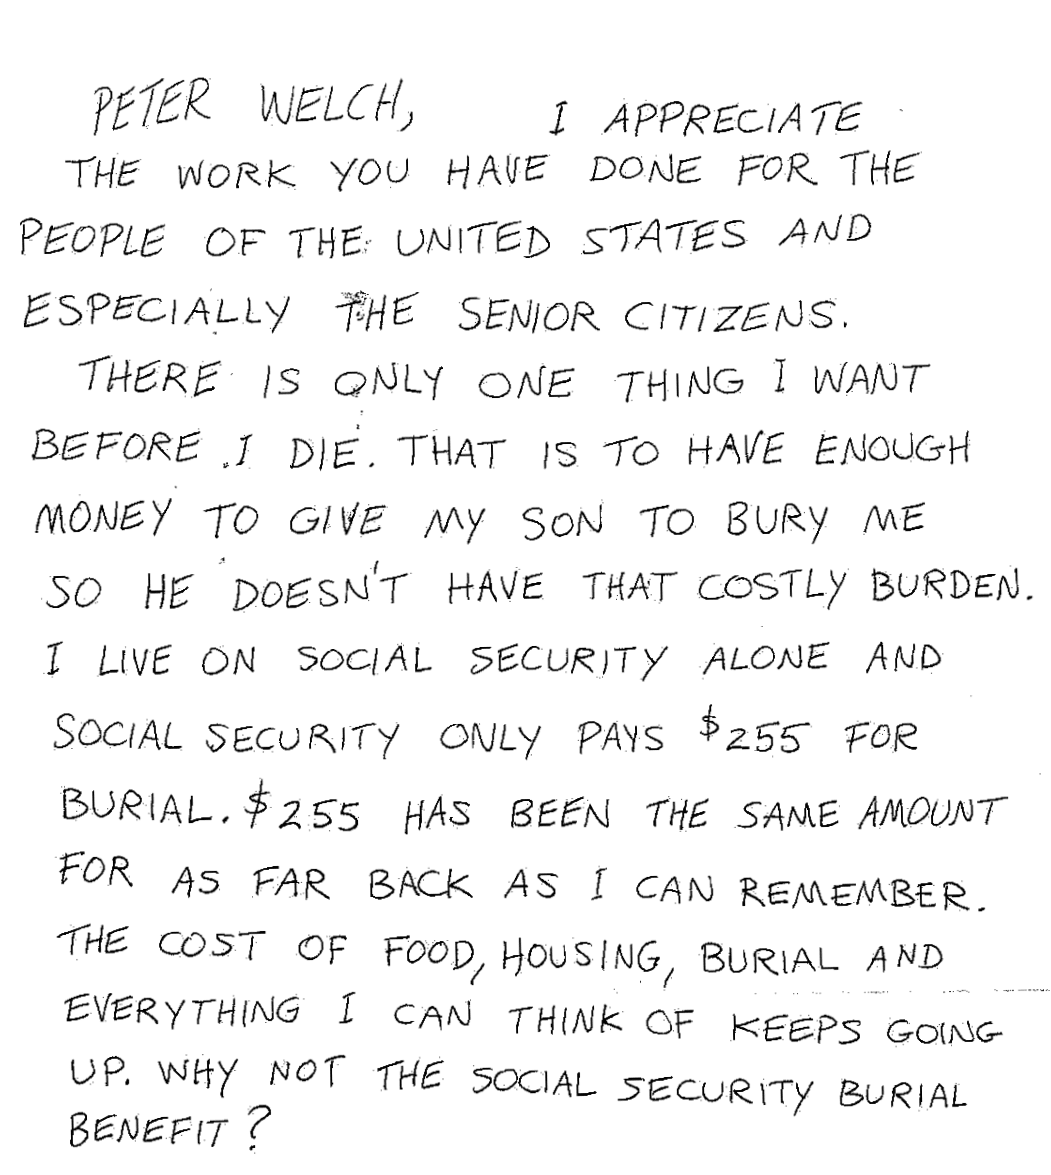 PETER WELCH, I APPRECIATE
THE WORK YOU HAVE DONE FOR THE
PEOPLE OF THE UNITED STATES AND
ESPECIALLY THE SENIOR CITIZENS.
THERE IS ONLY ONE THING I WANT
BEFORE I DIE. THAT IS TO HAVE ENOUGH
MONEY TO GIVE MY SON TO BURY ME
SO HE DOESN'T HAVE THAT COSTLY BURDEN.
I LIVE ON SOCIAL SECURITY ALONE AND
SOCIAL SECURITY ONLY PAYS $255 FOR
BURIAL. $255 HAS BEEN THE SAME AMOUNT
FOR AS FAR BACK AS I CAN REMEMBER.
THE COST OF FOOD, HOUSING, BURIAL AND
EVERYTHING I CAN THINK OF KEEPS GOING
UP. WHY NOT THE SOCIAL SECURITY BURIAL
BENEFIT?